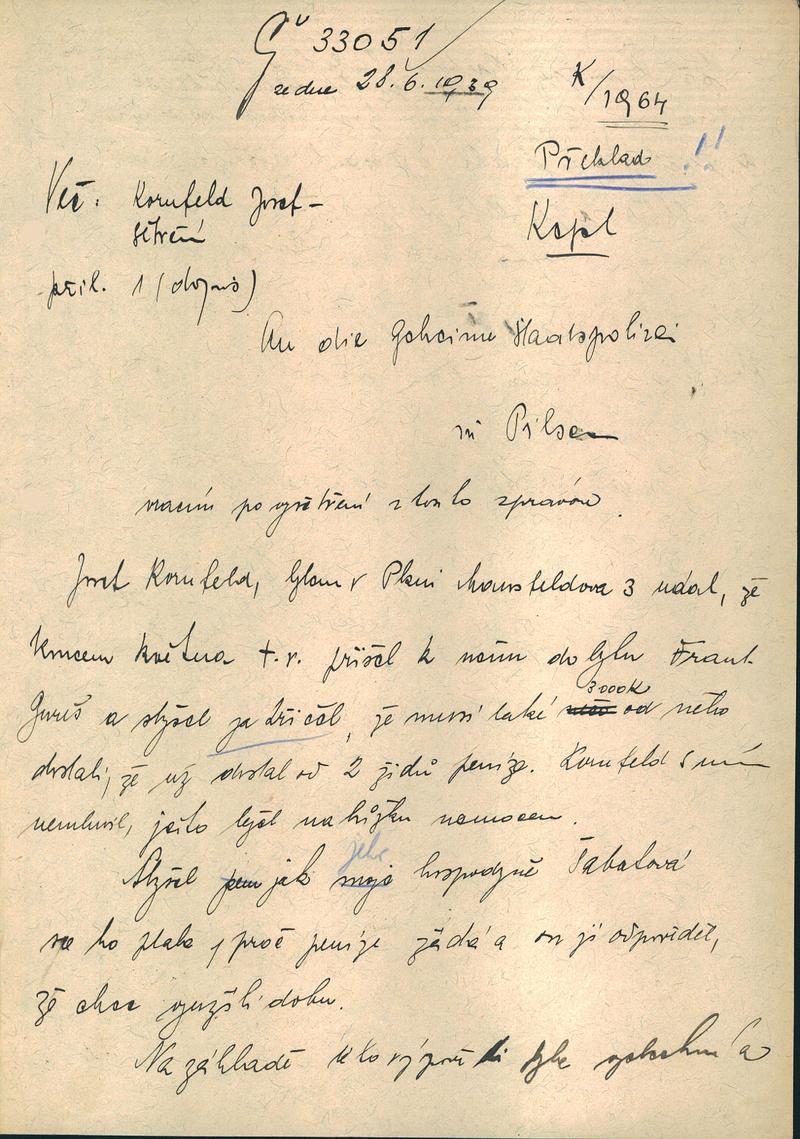 Gů 33051
ze dne 28.6.1939
K/1964
Překlad !!
Věc: Kornfeld Josef –
šetření
Kopl
příl. 1 (dopis)
An die Geheime Staatspolizei
in Pilsen
vracím po vyšetření s touto zprávou.
Josef Kornfeld, bytem v Plzni Mansfeldova 3 udal, že
koncem května t.r. přišel k němu do bytu Frant.
Gureš a slyšel jak křičel, že musí také 3000K od něho
dostati, že už dostal od 2 židů peníze. Kornfeld s ním
nemluvil, ježto ležel na lůžku nemocen.
Slyšel jen jak moje jeho hospodyně Šabatová
se ho ptala, proč peníze žádá a on jí odpověděl,
že chce využíti dobu.
Na základě této výpovědi byla vyslechnuta